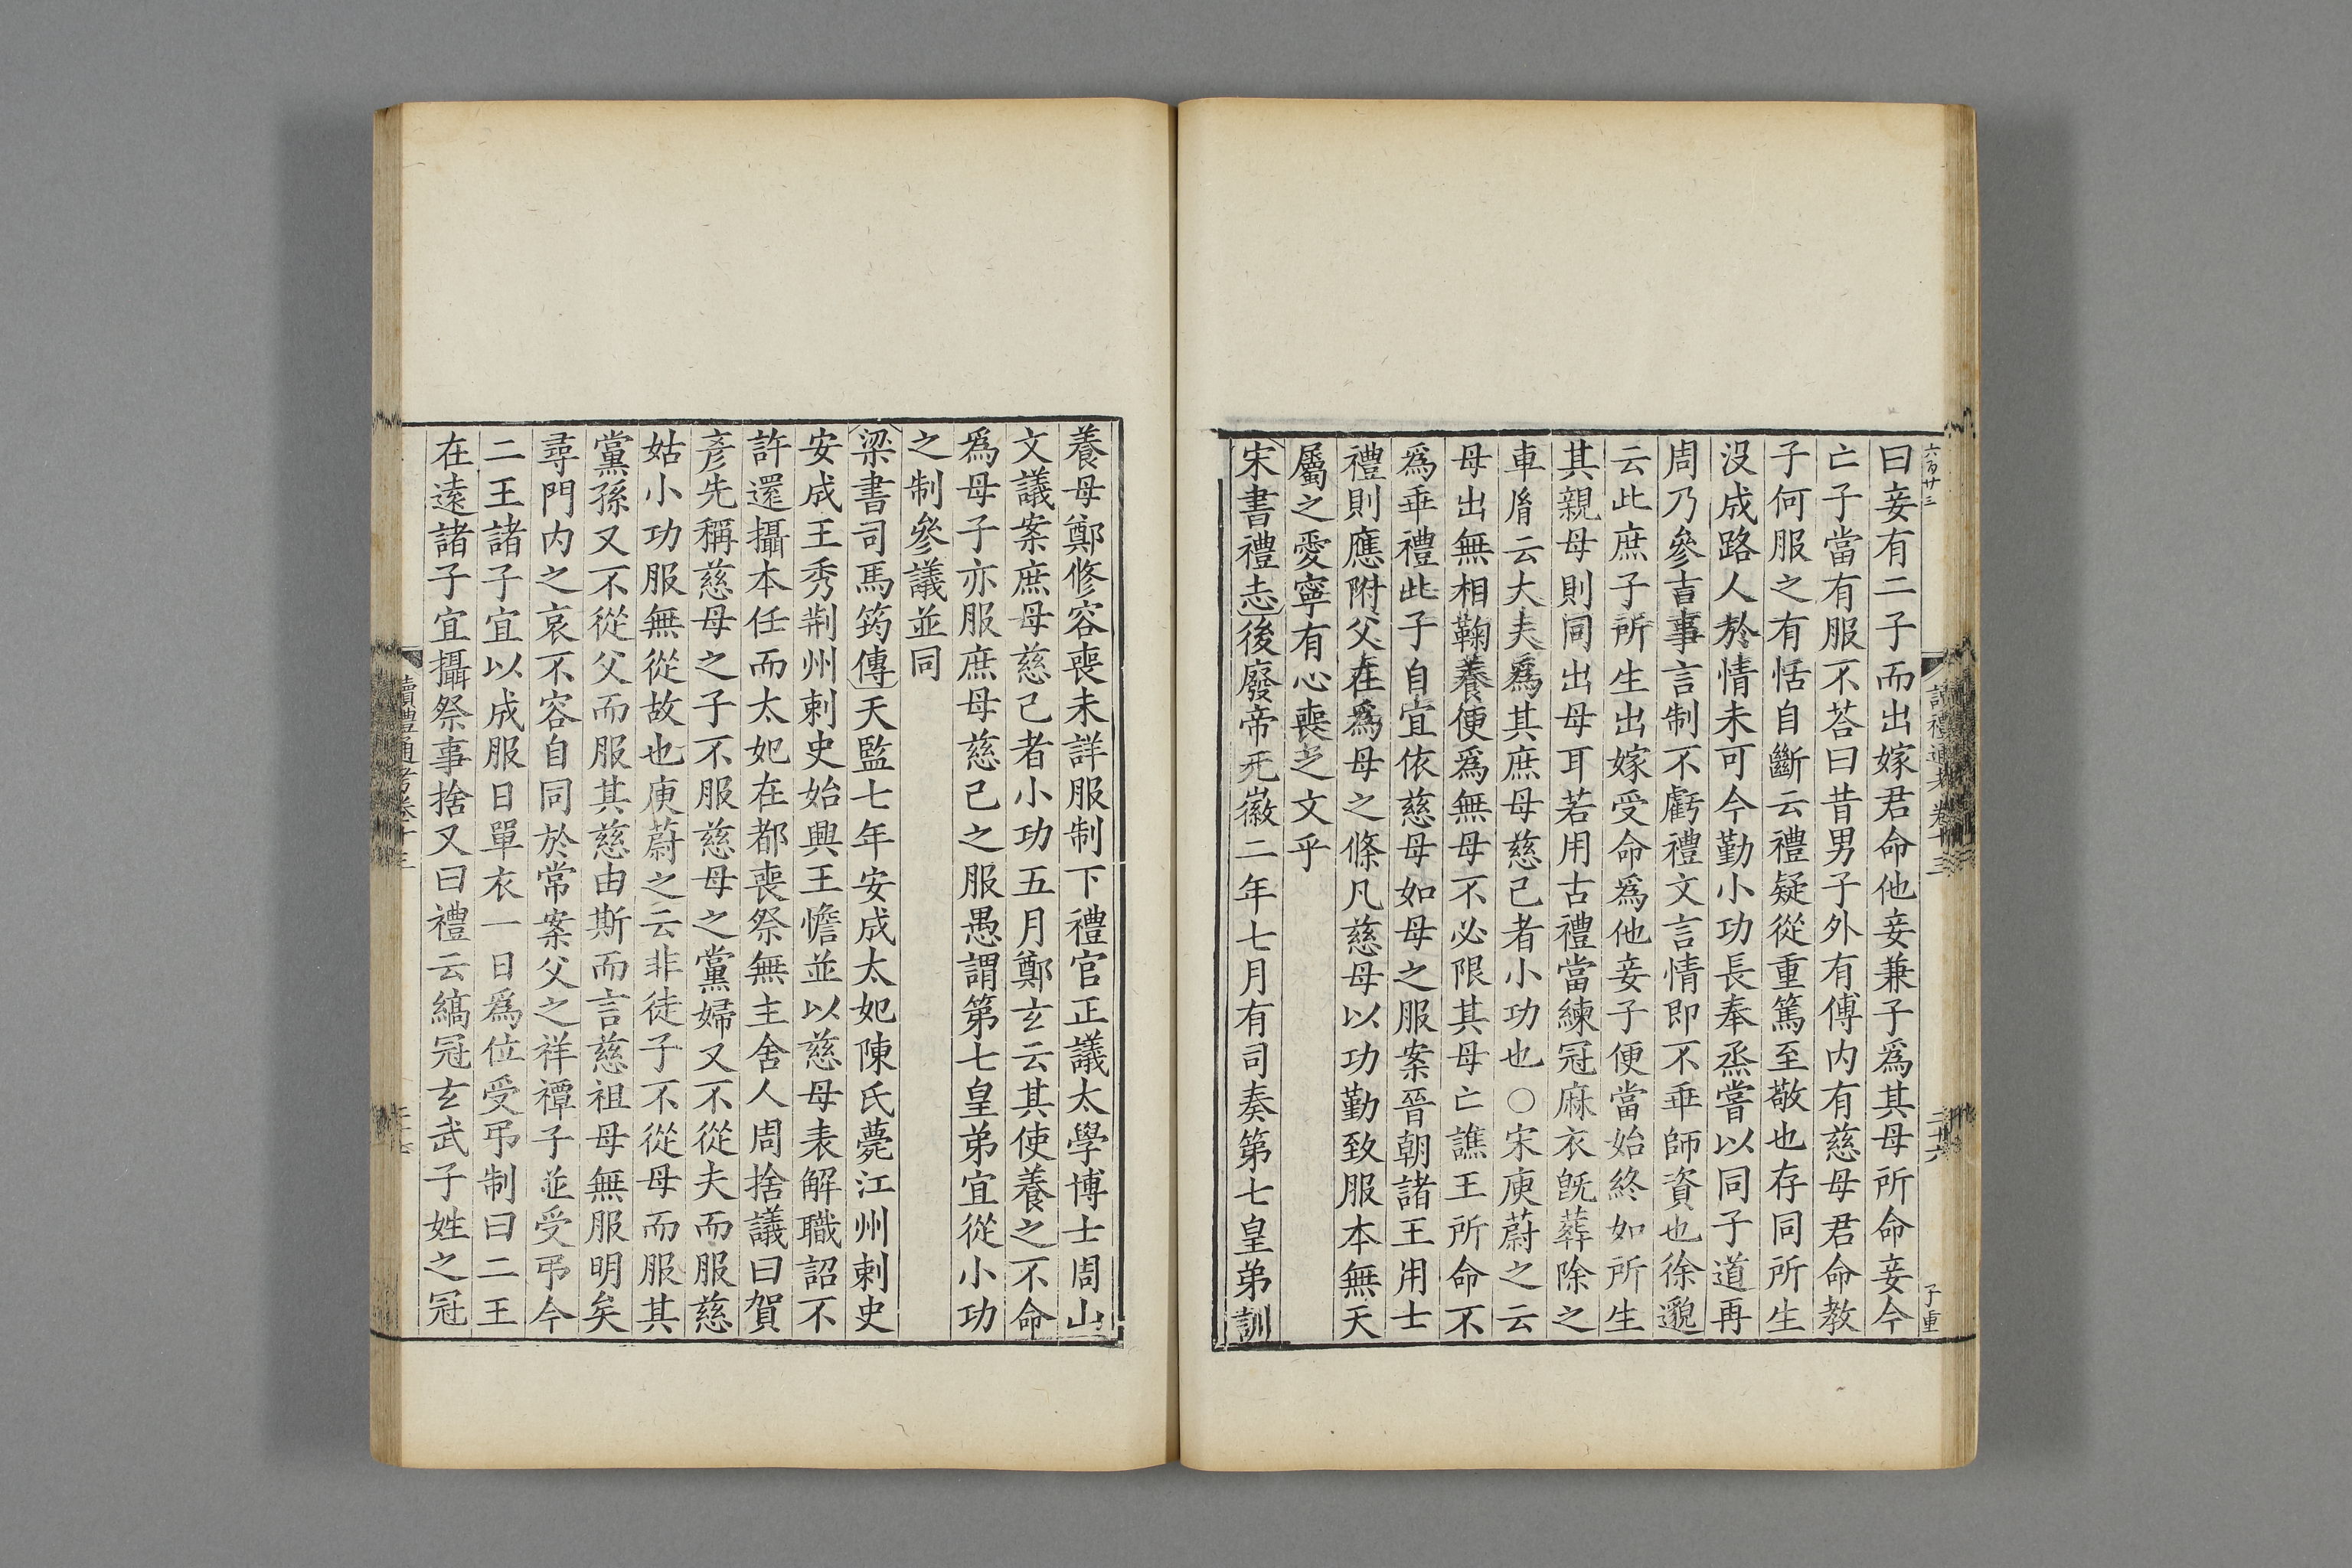 六百廿三
讀禮通考卷十三
二十六
子重
曰妾有二子而出嫁君命他妾兼子爲其母所命妾今
亡子當有服不荅曰昔男子外有傅内有慈母君命教
子何服之有恬自斷云禮疑從重篤至敬也存同所生
沒成路人於情未可今勤小功長奉烝嘗以同子道再
周乃參吉事言制不虧禮文言情即不乖師資也徐邈
云此庶子所生出嫁受命爲他妾子便當始終如所生
其親母則同出母耳若用古禮當練冠麻衣旣葬除之
車胤云大夫爲其庶母慈己者小功也○宋庾蔚之云
母出無相鞠養便爲無母不必限其母亡譙王所命不
爲乖禮此子自宜依慈母如母之服案晉朝諸王用士
禮則應附父在爲母之條凡慈母以功勤致服本無天
屬之愛寧有心喪之文乎
宋書禮志後廢帝元徽二年七月有司奏第七皇弟訓
養母鄭修容喪未詳服制下禮官正議太學博士周山
文議案庶母慈己者小功五月鄭玄云其使養之不命
爲母子亦服庶母慈己之服愚謂第七皇弟宜從小功
之制參議並同
梁書司馬筠傳天監七年安成太妃陳氏薨江州刺史
安成王秀荆州刺史始興王憺並以慈母表解職詔不
許還攝本任而太妃在都喪祭無主舍人周捨議曰賀
彥先稱慈母之子不服慈母之黨婦又不從夫而服慈
姑小功服無從故也庾蔚之云非徒子不從母而服其
黨孫又不從父而服其慈由斯而言慈祖母無服明矣
尋門内之哀不容自同於常案父之祥禫子並受弔今
二王諸子宜以成服日單衣一日爲位受弔制曰二王
在遠諸子宜攝祭事捨又曰禮云縞冠玄武子姓之冠
讀禮通考卷十三
二十七